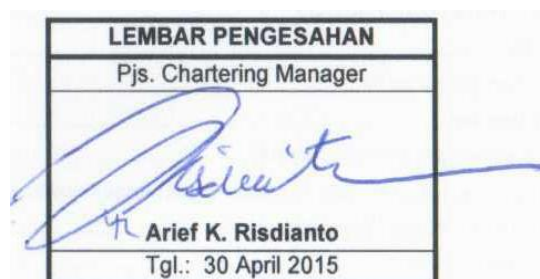 LEMBAR PENGESAHAN
Pjs. Chartering Manager
Arief K. Risdianto
Tgl.: 30 April 2015